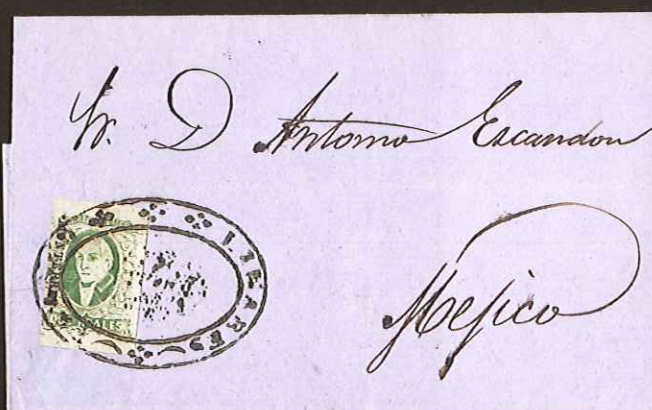 Sr. D Antonio Escandon
Mejico
LINARES